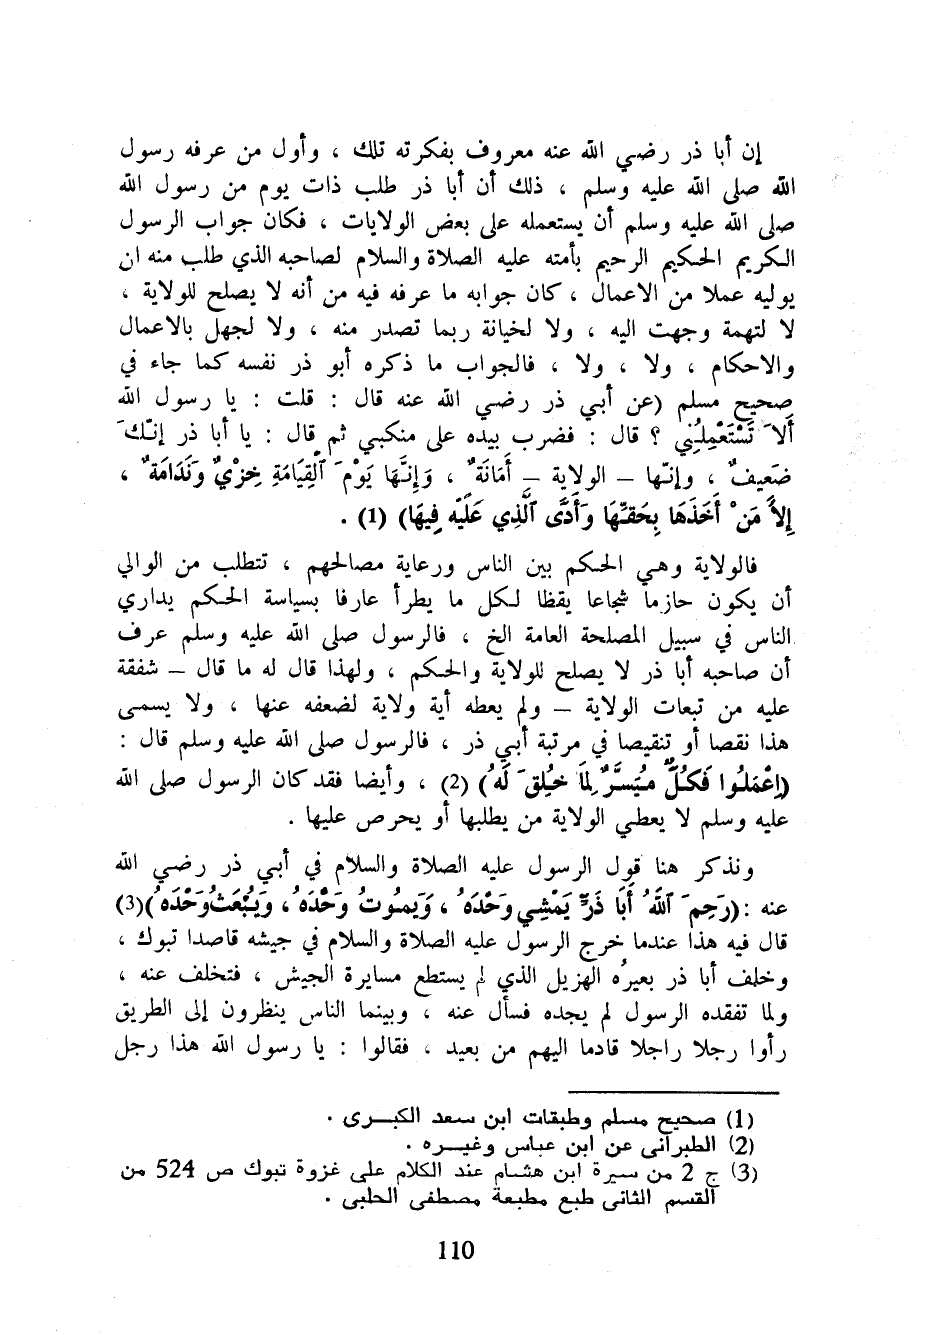 إن أبا ذر رضي الله عنه معروف بفكرته تلك ، وأول من عرفه رسول
الله صلى الله عليه وسلم ، ذلك أن أبا ذر طلب ذات يوم من رسول الله
صلى الله عليه وسلم أن يستعمله على بعض الولايات ، فكان جواب الرسول
الكريم الحكيم الرحيم بأمته عليه الصلاة والسلام لصاحبه الذي طلب منه ان
يوليه عملا من الاعمال ، كان جوابه ما عرفه فيه من أنه لا يصلح للولاية ،
لا لتهمة وجهت اليه ، ولا لخيانة ربما تصدر منه ، ولا لجهل بالاعمال
والاحكام ، ولا ، ولا ، فالجواب ما ذكره أبو ذر نفسه كما جاء في
صحيح مسلم (عن أبي ذر رضي الله عنه قال : قلت : يا رسول الله
أَلاَ تَسْتَعْمِلُنِي ؟ قال : فضرب بيده على منكبي ثم قال : يا أبا ذر إنّكَ
ضَعِيفٌ ، وإنّها – الولاية – أَمَانَةٌ ، وَإِنَّهَا يَوْمَ ٱلْقِيَامَةِ خِزْيٌ وَنَدَامَةٌ ،
إِلاَّ مَنْ أَخَذَهَا بِحَقِّهَا وَأَدَّى ٱلَّذِي عَلَيْهِ فِيهَا) (1) .
فالولاية وهي الحكم بين الناس ورعاية مصالحهم ، تتطلب من الوالي
أن يكون حازما شجاعا يقظا لكل ما يطرأ عارفا بسياسة الحكم يداري
الناس في سبيل المصلحة العامة الخ ، فالرسول صلى الله عليه وسلم عرف
أن صاحبه أبا ذر لا يصلح للولاية والحكم ، ولهذا قال له ما قال – شفقة
عليه من تبعات الولاية – ولم يعطه أية ولاية لضعفه عنها ، ولا يسمى
هذا نقصا أو تنقيصا في مرتبة أبي ذر ، فالرسول صلى الله عليه وسلم قال :
(اِعْمَلُوا فَكُلٌّ مُيَسَّرٌ لِمَا خُلِقَ لَهُ) (2) ، وأيضا فقد كان الرسول صلى الله
عليه وسلم لا يعطي الولاية من يطلبها أو يحرص عليها .
ونذكر هنا قول الرسول عليه الصلاة والسلام في أبي ذر رضي الله
عنه : (رَحِمَ ٱللَّهُ أَبَا ذَرٍّ يَمْشِي وَحْدَهُ ، وَيَمُوتُ وَحْدَهُ ، وَيُبْعَثُ وَحْدَهُ) (3)
قال فيه هذا عندما خرج الرسول عليه الصلاة والسلام في جيشه قاصدا تبوك ،
وخلف أبا ذر بعيرُه الهزيل الذي لم يستطع مسايرة الجيش ، فتخلف عنه ،
ولما تفقده الرسول لم يجده فسأل عنه ، وبينما الناس ينظرون إلى الطريق
رأوا رجلا راجلا قادما اليهم من بعيد ، فقالوا : يا رسول الله هذا رجل
(1) صحيح مسلم وطبقات ابن سعد الكبرى .
(2) الطبرانى عن ابن عباس وغيره .
(3) ج 2 من سيرة ابن هشام عند الكلام على غزوة تبوك ص 524 من
القسم الثانى طبع مطبعة مصطفى الحلبى .
110